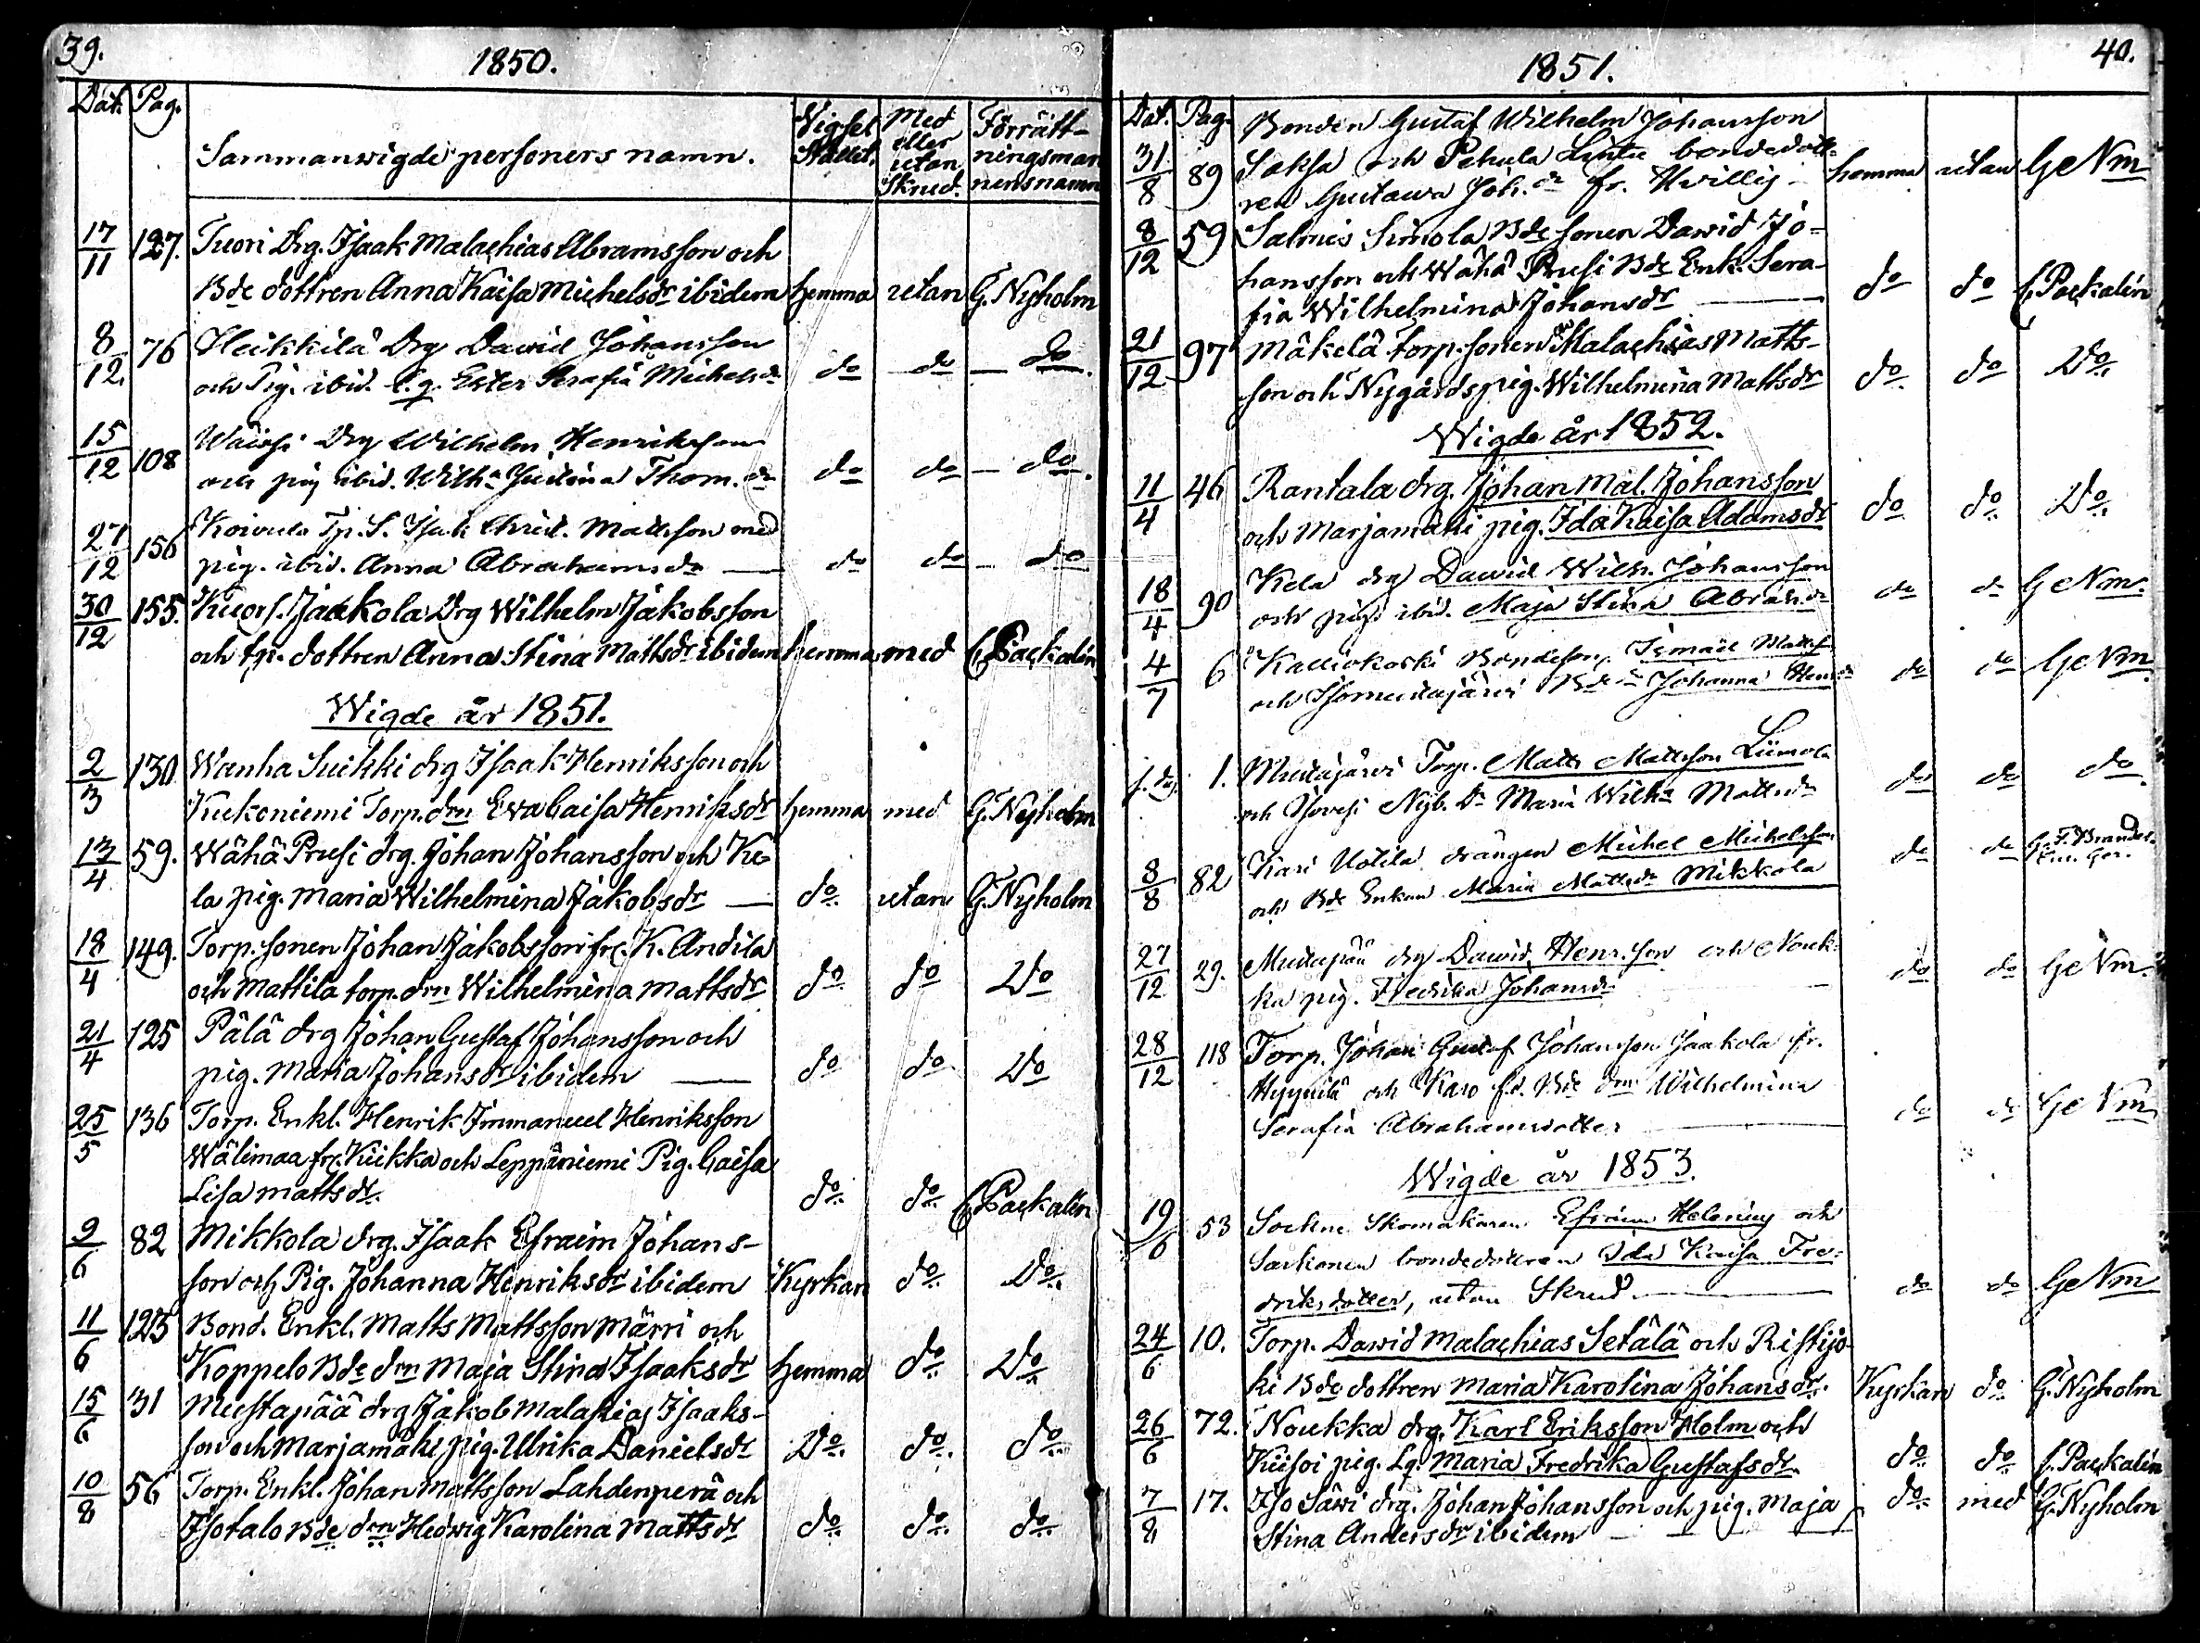 39.
1850.
Dat. Pag. Sammanwigde personers namn. Vigsel Stället. Med eller utan Skrud. Förrättningsmannensnamn
17/11 127. Tuori Drg. Isaak Malachias Abramsson och
Bde dottren Anna Kaisa Michelsdr ibidem hemma utan G. Nyholm
8/12. 76 Heikkilä Drg Dawid Johansson
och Pig. ibid. Ester Serafia Michelsdr do do do.
15/12 108 Drg Wilhelm Henriksson
och pig ibid. Wilha Justina Thom. dr do do do.
27/12 156 Koivula Tp. S. Isak Christ. Mattsson med
pig. ibid. Anna Abrahamsdr do do do
30/12 155. Jaakola Drg Wilhelm Jakobsson
och tp. dottren Anna Stina Mattsdr ibidem hemma med C. Packalén
Wigde år 1851.
2/3 130 Wanha Suikki drg Isaak Henriksson och
Kukoniemi Torp. drn Eva Caisa Henriksdr hemma med G. Nyholm
13/4 59. Wähä Prusi drg. Johan Johansson och Ke-
la pig. Maria Wilhelmina Jakobsdr do utan G. Nyholm
18/4 149. Torp. sonen Johan Jakobsson fr. K. Andila
och Mattila torp. drn Wilhelmina Mattsdr do do Do
21/4 125 Pälä drg Johan Gustaf Johansson och
pig. Maria Johansdr ibidem do do Do
25/5 136 Torp. Enkl. Henrik Immanuel Henriksson
Wälimaa fr. Kiikka och Leppäniemi Pig. Caisa
Lisa Mattsdr. do do C. Packalén
9/6 82 Mikkola drg. Isaak Efraim Johans-
son och Pig. Johanna Henriksdr ibidem Kyrkan do Do
11/6 125 Bond. Enkl. Matts Mattsson Märri och
Koppelo Bde drn Maja Stina Isaaksdr hemma do Do
15/6 31 Mustapää drg Jakob Malakias Isaaks-
son och Marjamäki pig. Ulrika Danielsdr Do. do. do
10/8 56 Torp. Enkl. Johan Mattsson Lahdenperä och
Isotalo Bde drn Hedwig Karolina Mattsdr do do do
40.
1851.
Dat. Pag. Bonden Gustaf Wilhelm Johansson
31/8 89 och bondedott-
ren Gustawa Joh. dr fr. hemma utan GeNm
8/12 59 Salmis Simola Bde sonen Dawid Jo-
hansson och Wähä Prusi Bde Enk. Sera-
fia Wilhelmina Johansdr do do C. Packalén
21/12 97 Mäkelä torp. sonen Malachias Matts-
son och Nygårds pig. Wilhelmina Mattsdr do do Do
Wigde år 1852.
11/4 46 Rantala drg. Johan Mal. Johansson
och Marjamäki pig. Ida Kaisa Adamsdr do do Do
18/4 90 Kela drg Dawid Wilh. Johansson
och pig. ibid. Maja Stina Abrah.dr do do GeNm.
4/7 6 Kalliokoski Bondeson Ismael Matts
och Bde Johanna do do GeNm
s. dag 1. Mustajärvi Torp. Matts Mattsson Liimola
och Nyb. Dr Maria Wilha Mattsdr do do do
8/8 82 Kari Uotila drängen Michel Michelsson
och Bde Enkan Maria Mattsdr Mikkola do do
27/12 29. Mustapää drg Dawid Henr.son och Nouk-
ka pig. Fredrika Johansdr do do GeNm.
28/12 118 Torp. Johan Gustaf Johansson Jaakola fr.
Hyynilä och Karo Bde drn Wilhelmina
Serafia Abrahamsdotter do do GeNm
Wigde år 1853.
19/6 53 Sockne Skomakaren Efraim Helenius och
Sarkonen bondedottren Ida Kaisa Fre-
driksdotter, utan Skrud. do do GeNm
24/6 10. Torp. Dawid Malachias Setälä och Ristijo-
ki Bde dottren Maria Karolina Johansdr. Kyrkan do G. Nyholm
26/6 72. Noukka drg. Karl Eriksson Holm och
Kiisoi pig. Maria Fredrika Gustafsdr. do do C. Packalén
7/8 17. Iso Säwi drg. Johan Johansson och pig. Maja
Stina Andersdr ibidem do med G. Nyholm